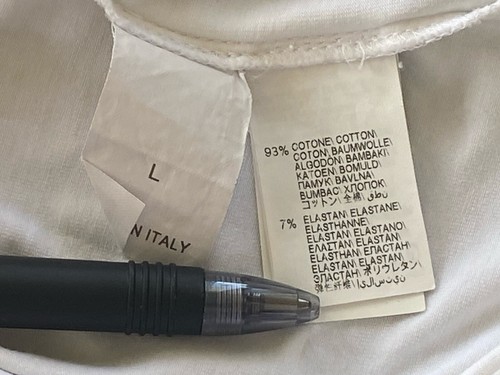 L
N ITALY
93% COTONE\ COTTON\
COTON\ BAUMWOLLE\
ALGODÓN\ BAMBAKI\
KATOEN\ BOMULD\
ПАМУК\ BAVLNA\
BUMBAC\ ХЛОПОК\
コットン\ 全棉\ قطن\
7% ELASTAN\ ELASTANE\
ELASTHANNE\
ELASTAN\ ELASTANO\
ΕΛΑΣΤΑΝ\ ELASTAN\
ELASTHAN\ ЕЛАСТАН\
ELASTAN\ ELASTAN\
ЭЛАСТАН\ ポリウレタン\
弹性纤维\